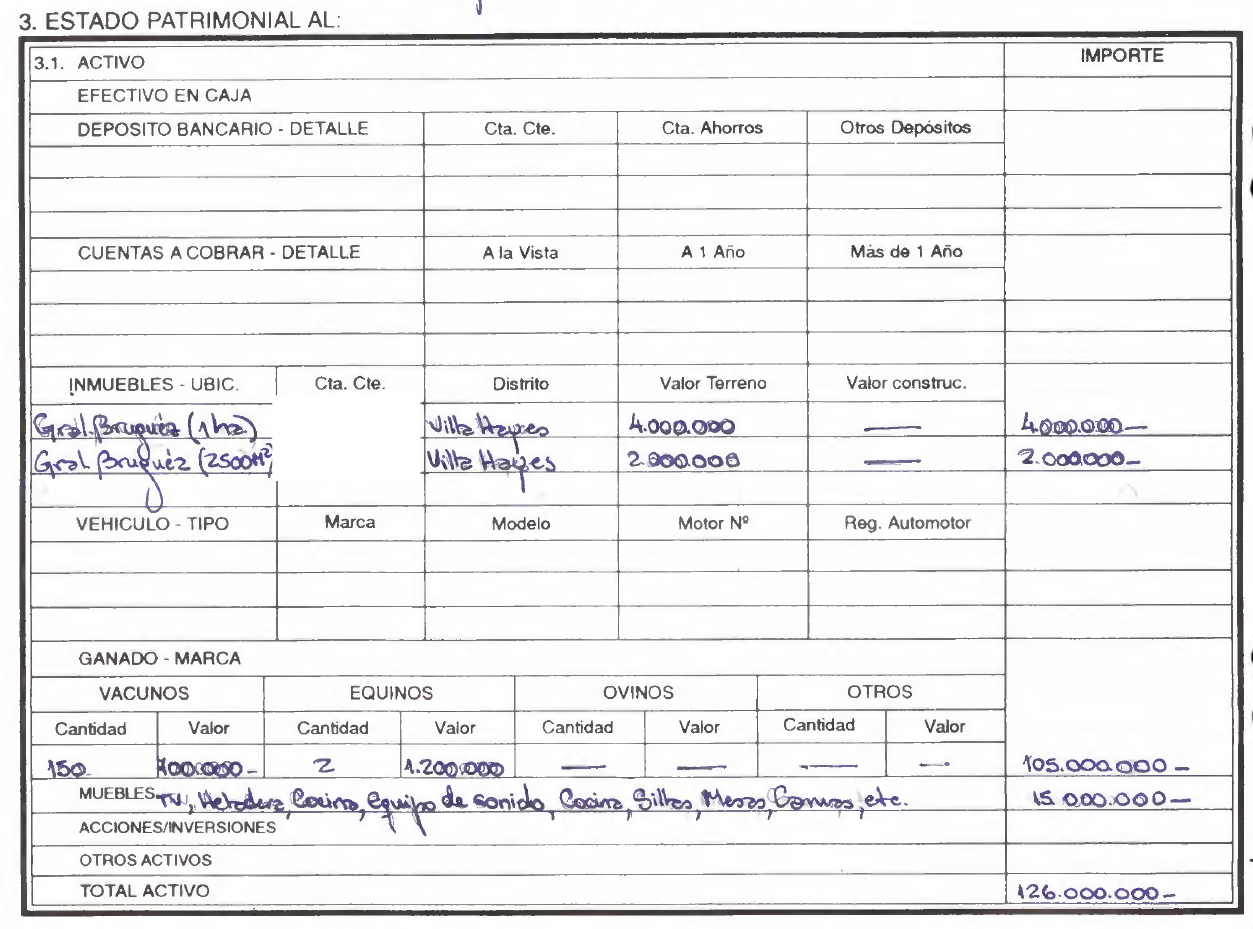 3. ESTADO PATRIMONIAL AL:
3.1. ACTIVO IMPORTE
EFECTIVO EN CAJA
DEPOSITO BANCARIO - DETALLE Cta. Cte. Cta. Ahorros Otros Depósitos
CUENTAS A COBRAR - DETALLE A la Vista A 1 Año Más de 1 Año
INMUEBLES - UBIC. Cta. Cte. Distrito Valor Terreno Valor construc.
Gral. Bruguéz (1 ha.) Villa Hayes 4.000.000 — 4.000.000—
Gral Bruguéz (2500M² Villa Hayes 2.000.000 — 2.000.000—
VEHICULO - TIPO Marca Modelo Motor Nº Reg. Automotor
GANADO - MARCA
VACUNOS EQUINOS OVINOS OTROS
Cantidad Valor Cantidad Valor Cantidad Valor Cantidad Valor
150 700.000- 2 1.200.000 — — — — 105.000.000 —
MUEBLES TV, Heladera, Cocina, equipo de sonido, Cocina, Sillas, Mesas, Camas, etc. 15.000.000—
ACCIONES/INVERSIONES
OTROS ACTIVOS
TOTAL ACTIVO 126.000.000—